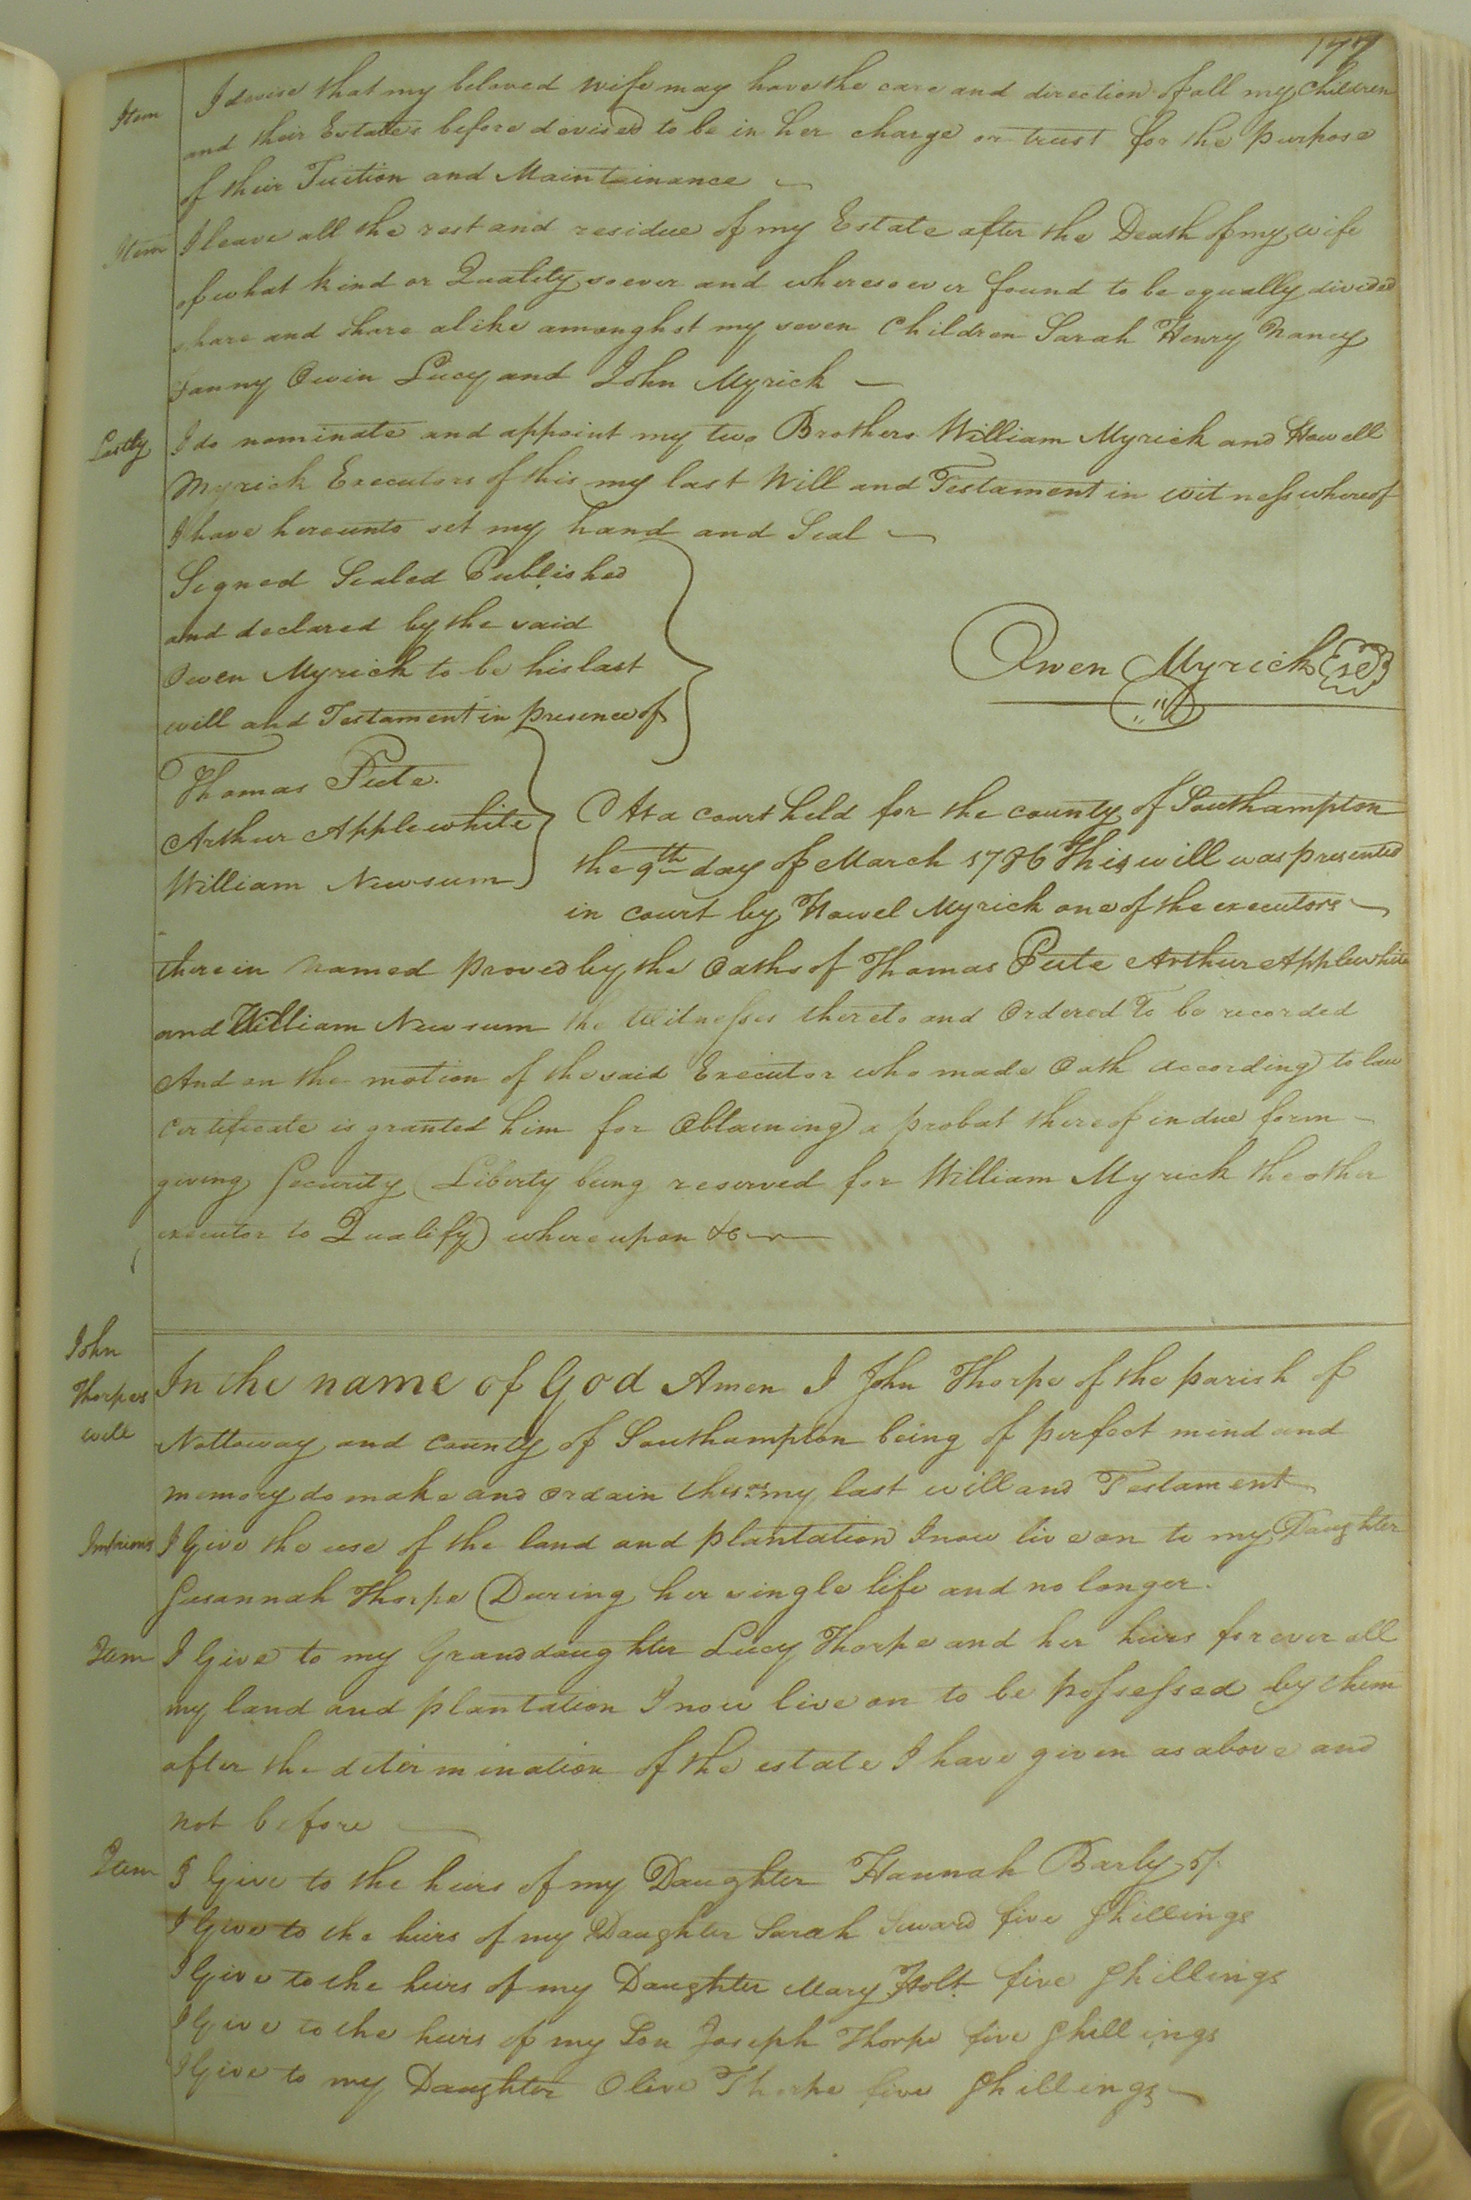 177
Item I devise that my beloved wife may have the care and direction of all my Children
and their Estates before devised to be in her charge or trust for the purpose
of their Tuition and Maintainance
Item I leave all the rest and residue of my Estate after the Death of my wife
of what kind or Quality soever and wheresoever found to be equally divided
share and share alike amonghst my seven Children Sarah Henry Nancy
Fanny Owin Lucy and John Myrick
Lastly I do nominate and appoint my two Brothers William Myrick and Howell
Myrick Executors of this my last Will and Testament in witness whereof
I have hereunto set my hand and Seal
Signed Sealed Published
and declared by the said
Owen Myrick to be his last
will and Testament in presence of
Owen Myrick
Thomas Pete
Arthur Applewhite
William Newsum
At a court held for the county of Southampton
the 9th day of March 1786 This will was presented
in court by Howel Myrick one of the executors
therein named proved by the Oaths of Thomas Pete Arthur Applewhite
and William Newsum the Witnesses thereto and Ordered To be recorded
And on the motion of the said Executor who made Oath according to law
Certificate is granted him for Obtaining a probat thereof in due form
giving Security (Liberty being reserved for William Myrick the other
executor to Qualify) whereupon &c
John Thorpes will
In the name of God Amen I John Thorpe of the parish of
Nottoway and County of Southampton being of perfect mind and
memory do make and ordain this as my last will and Testament
Imprimis I Give the use of the land and plantation I now live on to my Daughter
Susannah Thorpe During her single life and no longer.
Item I Give to my Granddaughter Lucy Thorpe and her heirs forever all
my land and plantation I now live on to be possessed by them
after the determination of the estate I have given as above and
not before
Item I Give to the heirs of my Daughter Hannah Barly 5/.
I Give to the heirs of my Daughter Sarah Seward five Shillings
I Give to the heirs of my Daughter Mary Holt five Shillings
I Give to the heirs of my Son Joseph Thorpe five Shillings
I Give to my Daughter Olive Thorpe five Shillings